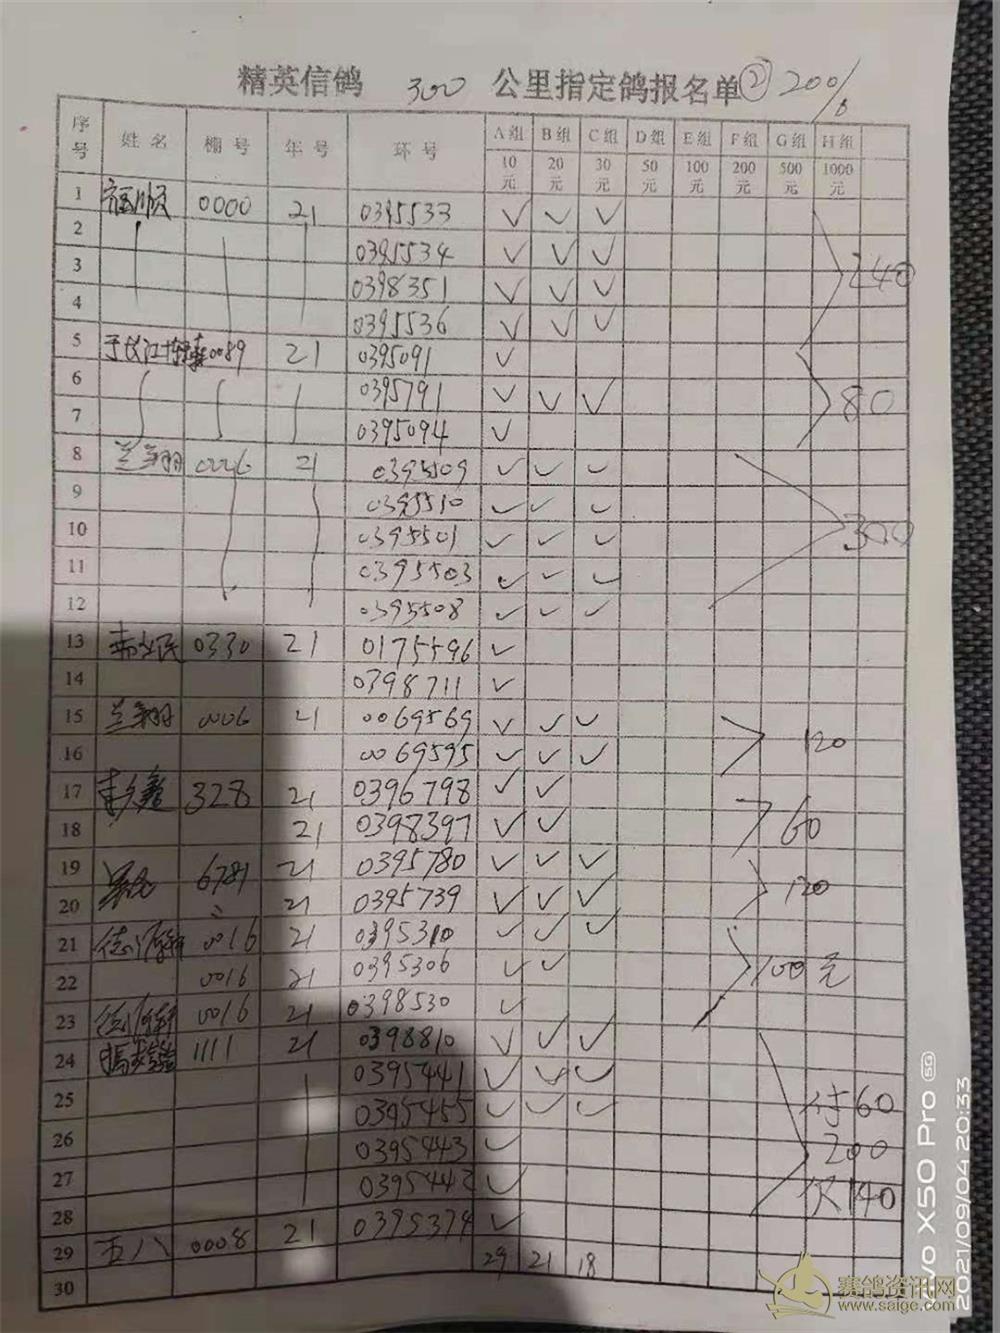 精英信鸽 300 公里指定鸽报名单 ② 200/
序号 姓名 棚号 年号 环号 A组 B组 C组 D组 E组 F组 G组 H组
10元 20元 30元 50元 100元 200元 500元 1000元
1 0000 21 0395533 ✓ ✓ ✓
2 0395534 ✓ ✓ ✓ 240
3 0398351 ✓ ✓ ✓
4 0395536 ✓ ✓ ✓
5 于长江 0089 21 0395091 ✓
6 0395791 ✓ ✓ ✓ 80
7 0395094 ✓
8 兰翔 0006 21 0395509 ✓ ✓ ✓
9 0395510 ✓ ✓ ✓
10 0395501 ✓ ✓ ✓ 300
11 0395503 ✓ ✓ ✓
12 0395508 ✓ ✓ ✓
13 0330 21 0175596 ✓
14 0398711 ✓
15 兰翔 0006 21 0069569 ✓ ✓ ✓ 120
16 0069595 ✓ ✓ ✓
17 328 21 0396798 ✓ ✓
18 21 0398397 ✓ ✓ 60
19 6781 21 0395780 ✓ ✓ ✓
20 21 0395739 ✓ ✓ ✓ 120
21 0016 21 0395310 ✓ ✓ ✓
22 0016 21 0395306 ✓ ✓ 100元
23 0016 21 0398530 ✓
24 1111 21 0398810 ✓ ✓ ✓
0395441 ✓ ✓ ✓
25 0395455 ✓ ✓ ✓ 付60
26 0395443 ✓ 200
27 0395442 ✓ 欠140
28 0395374 ✓
29 五八 0008 21 29 21 18
30
vivo X50 Pro 5G
2021/09/04 20:33
赛鸽资讯网
www.saige.com